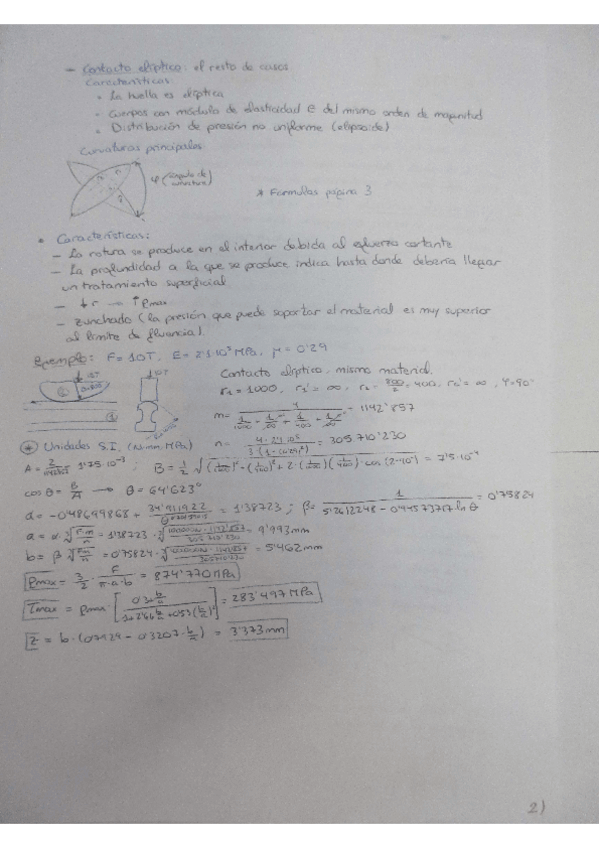 - Contacto elíptico: el resto de casos
Características:
• La huella es elíptica
• Cuerpos con módulo de elasticidad E del mismo orden de magnitud
• Distribución de presión no uniforme (elipsoide)
Curvaturas principales
φ (ángulo de curvatura)
* Formulas página 3
• Características:
- La rotura se produce en el interior debida al esfuerzo cortante
- La profundidad a la que se produce, indica hasta donde debería llegar
un tratamiento superficial
- ↓r → ↑Pmax
- Zunchado (la presión que puede soportar el material es muy superior
al límite de fluencia).
Ejemplo: F=10T, E=2'1·10⁵ MPa, μ=0'29
Contacto elíptico, mismo material.
r₁=1000, r₁'=∞, r₂=800/2=400, r₂'=∞, φ=90°
m= 4/(1/1000+1/∞+1/400+1/∞) = 1142'857
n= 4·2'1·10⁵/(3·(1-0'29²)) = 305710'230
* Unidades S.I. (N·mm, MPa)
A= 2/1142'857 = 1'75·10⁻³ ; B= 1/2 √((1/1000)²+(1/400)²+2·(1/1000)(1/400)·cos(2·90°)) = 7'5·10⁻⁴
cos θ = B/A → θ=64'623°
α= -0'48699863 + = 1'38723 ; β= = 0'75824
a= α·∛(F·m/n) = 1'38723· = 9'993mm
b= β ∛(F·m/n) = 0'75824· = 5'462mm
Pmax = 3/2 · F/(π·a·b) = 874'770 MPa
τmax = Pmax· = 283'497 MPa
z = b·(0'7929 - 0'3207·b/a) = 3'373mm
2)